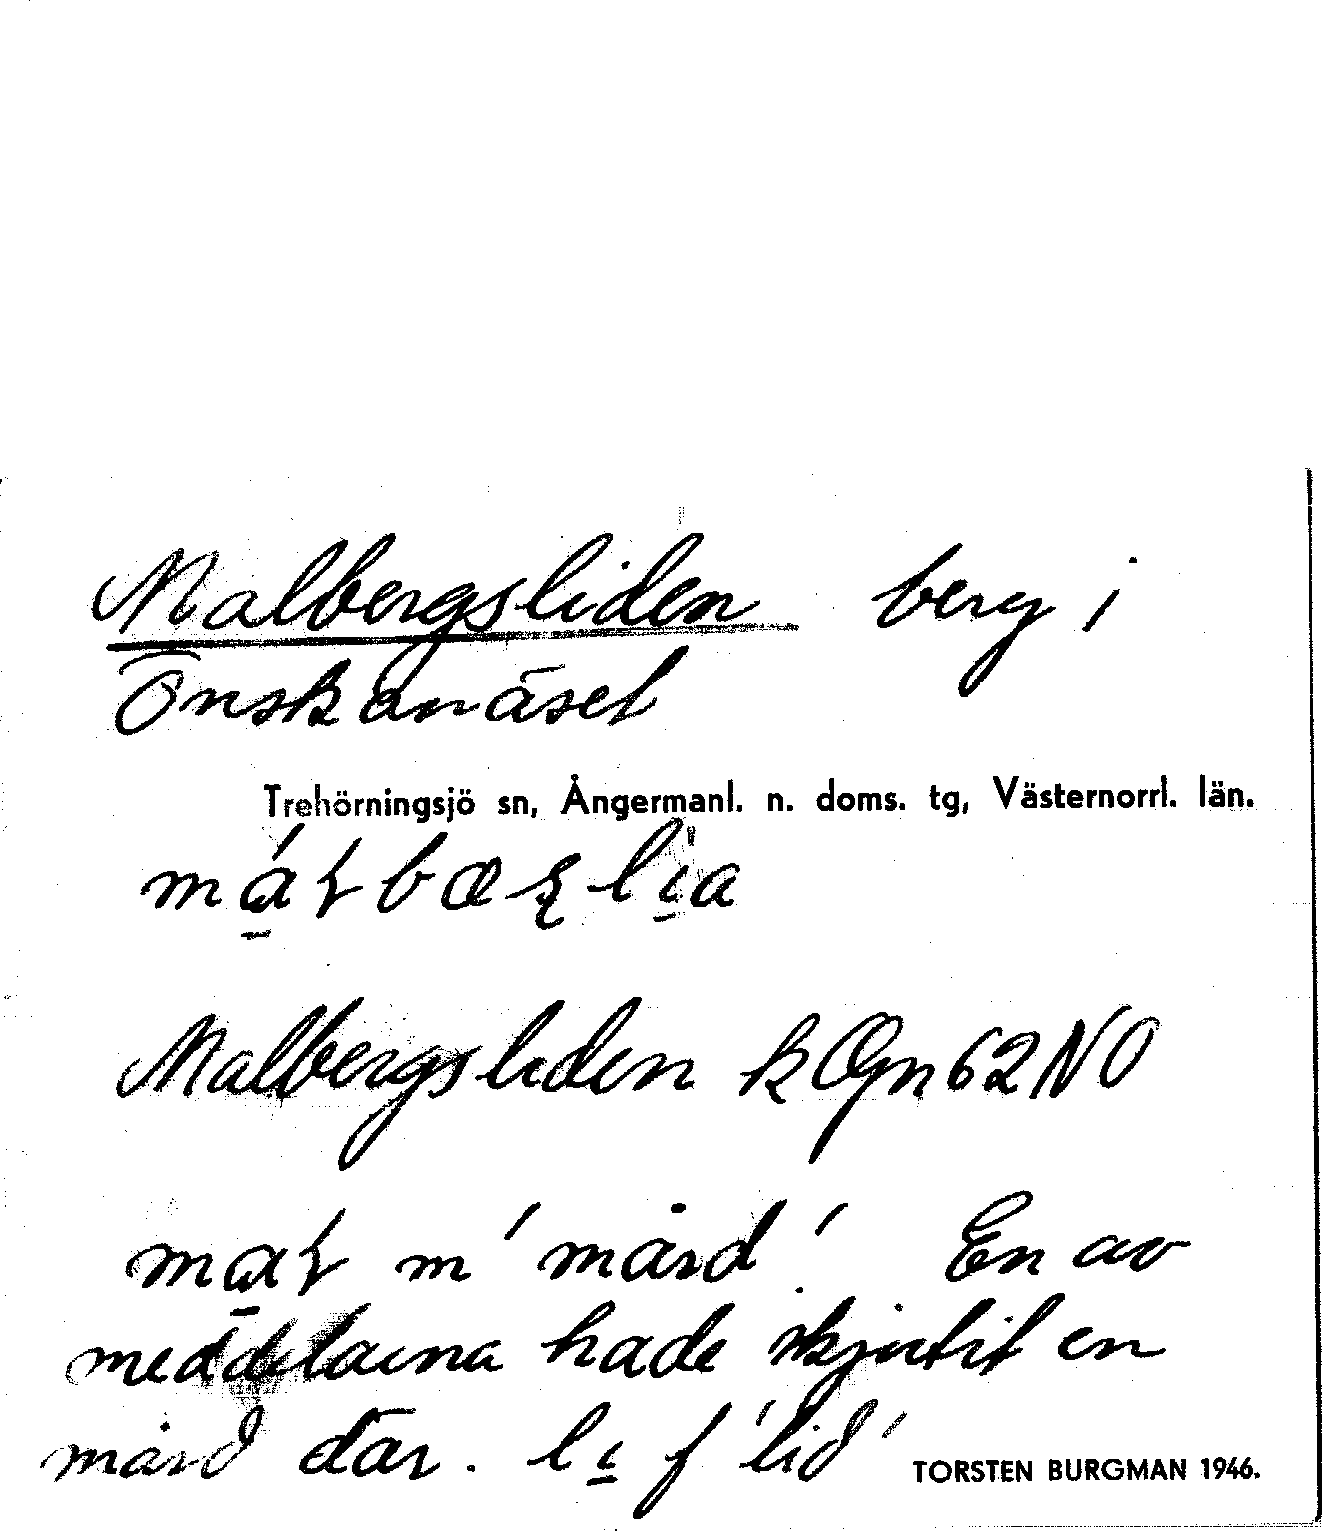 Malbergsliden berg i
Önskanäset
Trehörningsjö sn, Ångermanl. n. doms. tg, Västernorrl. län.
Malbergsliden k Ögn 62 NO
m 'mård'. En av
meddelarna hade skjutit en
mård där. li f 'lid'
TORSTEN BURGMAN 1946.